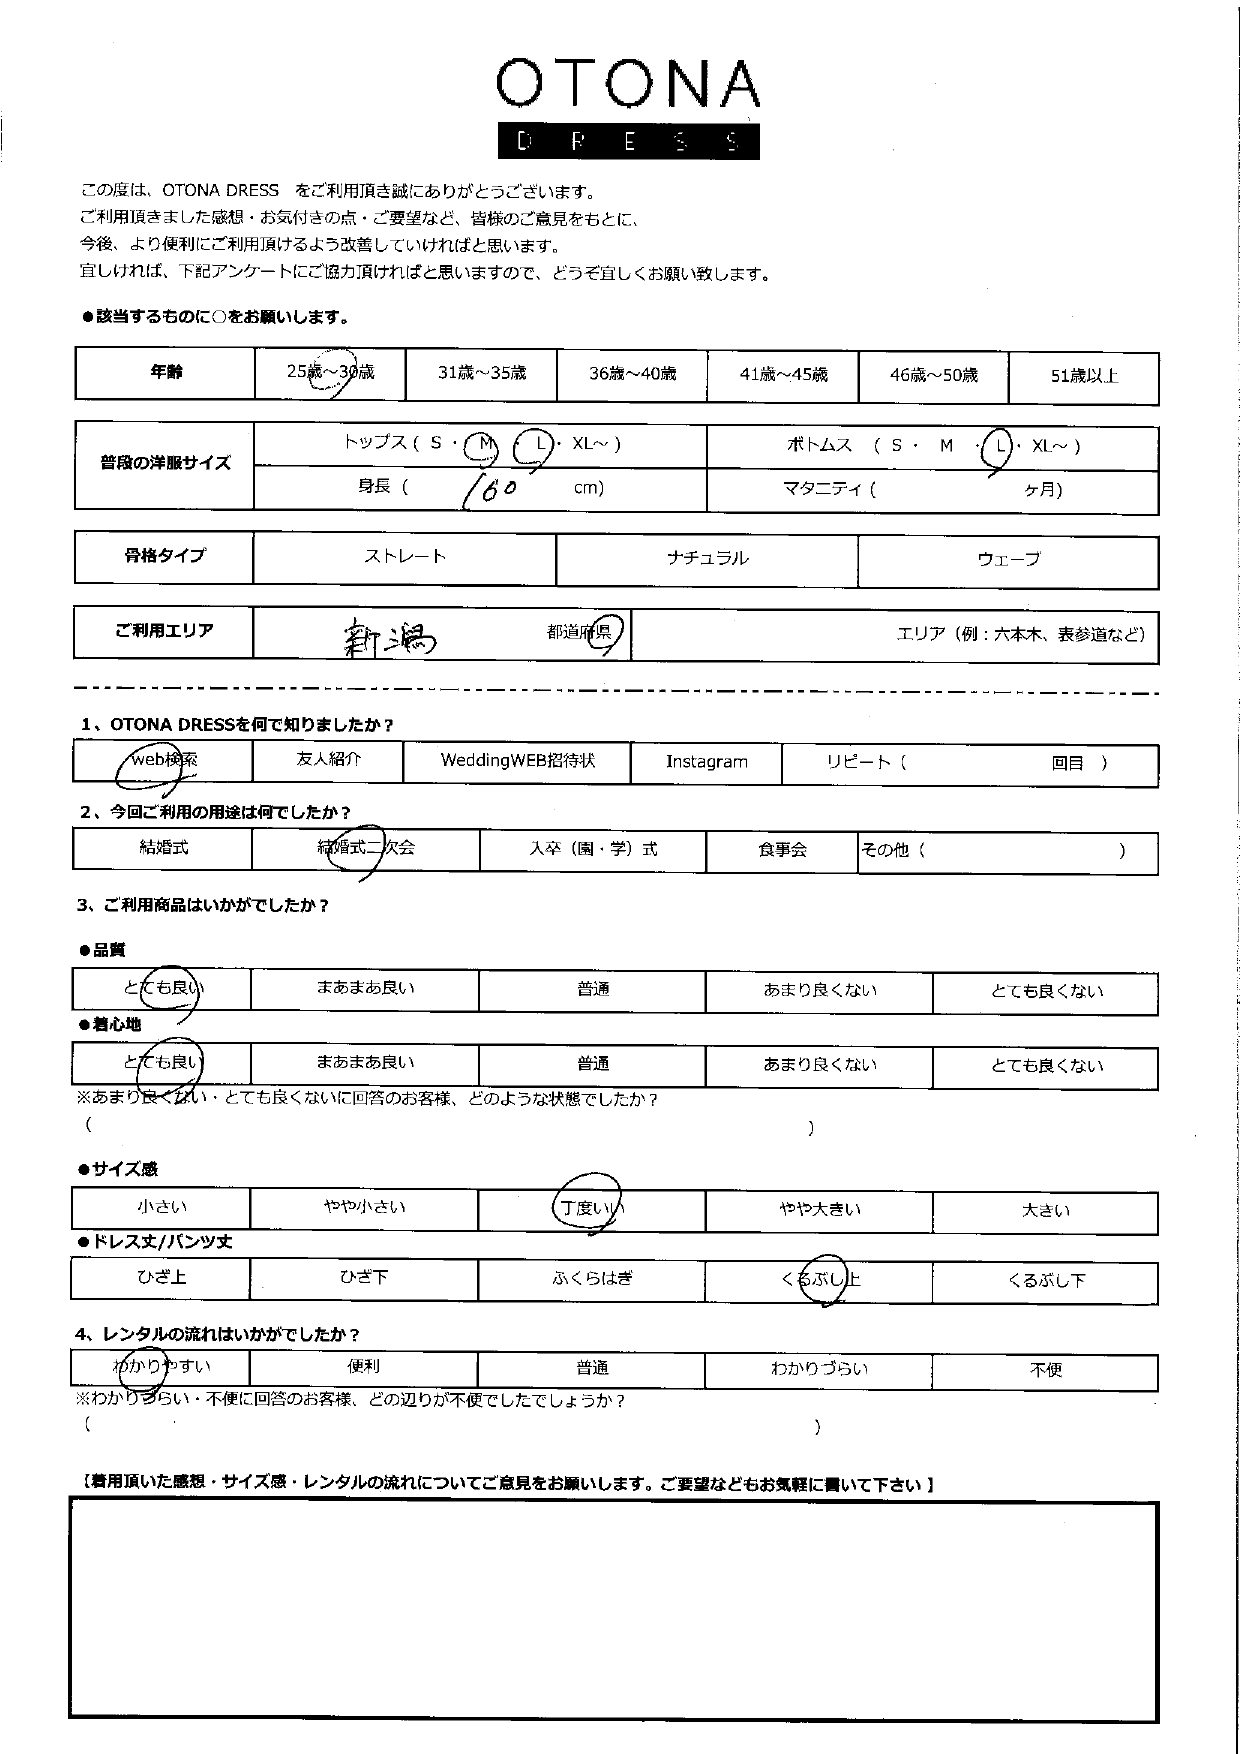 OTONA
DRESS
この度は、OTONA DRESS　をご利用頂き誠にありがとうございます。
ご利用頂きました感想・お気付きの点・ご要望など、皆様のご意見をもとに、
今後、より便利にご利用頂けるよう改善していければと思います。
宜しければ、下記アンケートにご協力頂ければと思いますので、どうぞ宜しくお願い致します。
●該当するものに○をお願いします。
年齢 25歳～30歳 31歳～35歳 36歳～40歳 41歳～45歳 46歳～50歳 51歳以上
普段の洋服サイズ トップス ( S ・ M ・ L ・ XL～ ) ボトムス ( S ・ M ・ L ・ XL～ )
身長 ( 160 cm) マタニティ ( ヶ月)
骨格タイプ ストレート ナチュラル ウェーブ
ご利用エリア 新潟 都道府県 エリア（例：六本木、表参道など）
1、OTONA DRESSを何で知りましたか？
web検索 友人紹介 WeddingWEB招待状 Instagram リピート（ 回目 ）
2、今回ご利用の用途は何でしたか？
結婚式 結婚式二次会 入卒（園・学）式 食事会 その他（ ）
3、ご利用商品はいかがでしたか？
●品質
とても良い まあまあ良い 普通 あまり良くない とても良くない
●着心地
とても良い まあまあ良い 普通 あまり良くない とても良くない
※あまり良くない・とても良くないに回答のお客様、どのような状態でしたか？
（ ）
●サイズ感
小さい やや小さい 丁度いい やや大きい 大きい
●ドレス丈/パンツ丈
ひざ上 ひざ下 ふくらはぎ くるぶし上 くるぶし下
4、レンタルの流れはいかがでしたか？
わかりやすい 便利 普通 わかりづらい 不便
※わかりづらい・不便に回答のお客様、どの辺りが不便でしたでしょうか？
（ ）
【着用頂いた感想・サイズ感・レンタルの流れについてご意見をお願いします。ご要望などもお気軽に書いて下さい 】